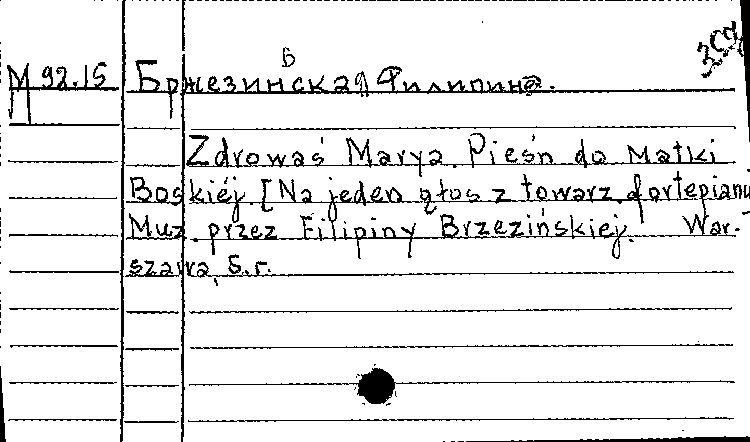 M 92.15 Бржезинская Филипина.
ь
Zdrowaś Marya. Pieśn do Matki
Boskiéj. [Na jeden głos z towarz. fortepianu
Muz. przez Filipiny Brzezińskiej. War-
szawa, S. r.